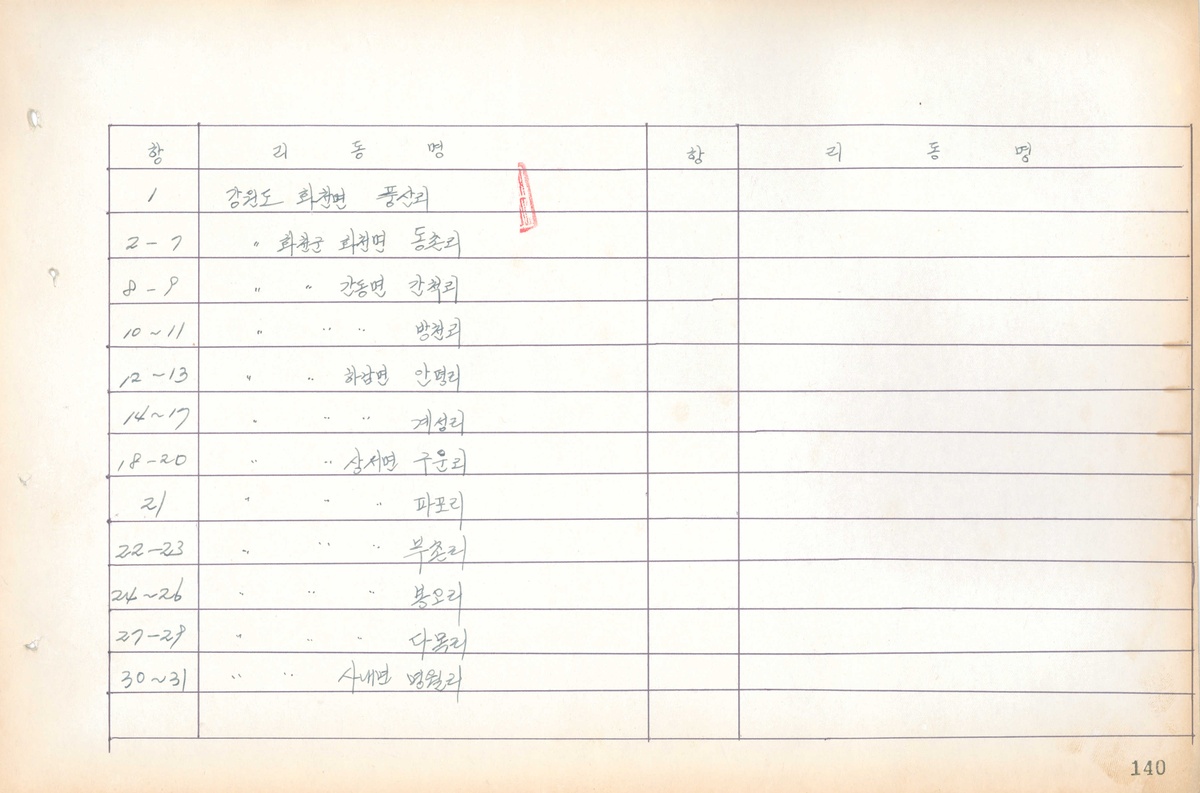 항 리 동 명 항 리 동 명
1 강원도 화천면 풍산리
2-7 〃 화천군 화천면 동촌리
8-9 〃 〃 간동면 간척리
10~11 〃 〃 〃 방천리
12~13 〃 〃 하남면 안평리
14~17 〃 〃 〃 계성리
18-20 〃 〃 상서면 구운리
21 〃 〃 〃 파포리
22-23 〃 〃 〃 부촌리
24~26 〃 〃 〃 봉오리
27-29 〃 〃 〃 다목리
30~31 〃 〃 사내면 명월리
140